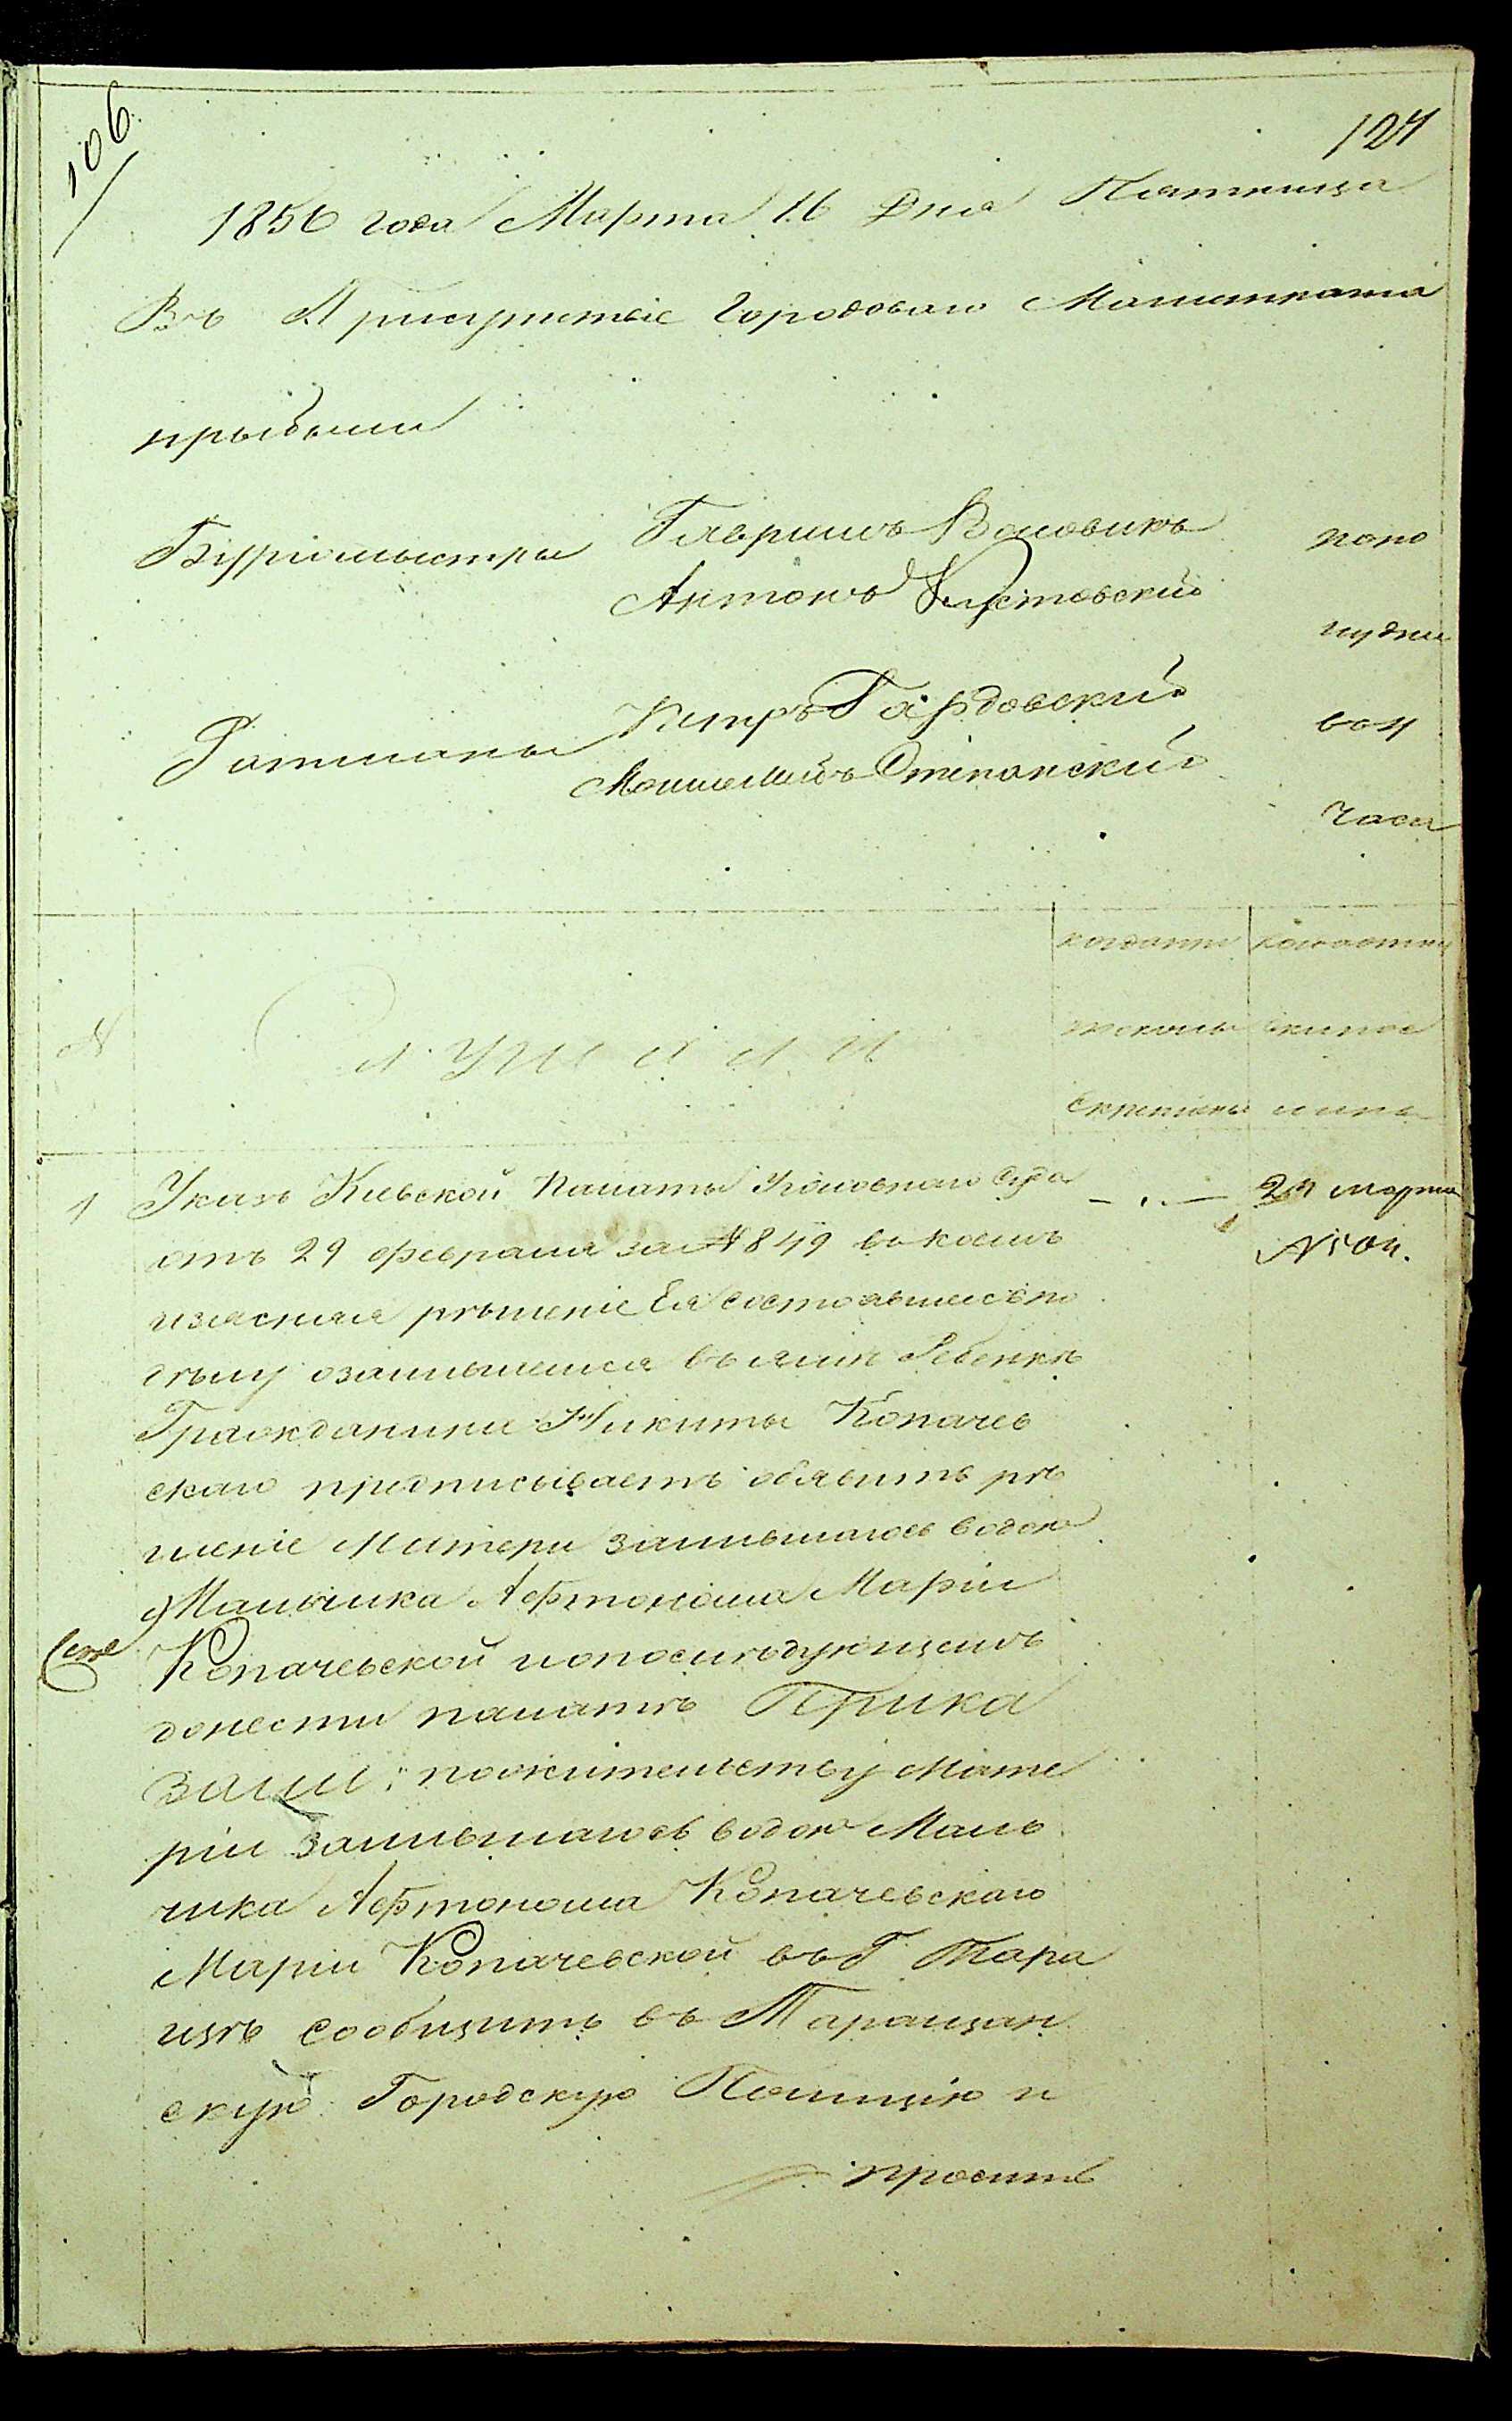 106.
127
1856 года Марта 16 Дня Пятница
Въ Присутствіе Городоваго Магистрата
прибыли
Бургомистры
Гаврилъ Воловикъ
Антонъ Кустовский
Ратманы
Петръ Гардовский
Степанский
попо
лудни
часа
№
Слушали
когда
исполне
1 Указъ Киевской Палаты Уголовнаго Суда
24 марта
отъ 29 февраля за № 849 въ коемъ
№ 504.
изяснял решеніе Ея состоявшеесь по
делу озалившемся въ Ребенке
Гражданина Никиты Копачев
скаго предписываетъ обявить ре
шеніе Матери залившагось водою
Мальчика Афтонома Маріи
Копачевской и о последующемъ
донести палатѣ Прика
зали: по жительству Мате
ріи залившагось водою Маль
чика Афтонома Копачевскаго
Маріи Копачевской въ Г. Тара
щѣ сообщить въ Таращан
скую Городскую Полицію и
просить